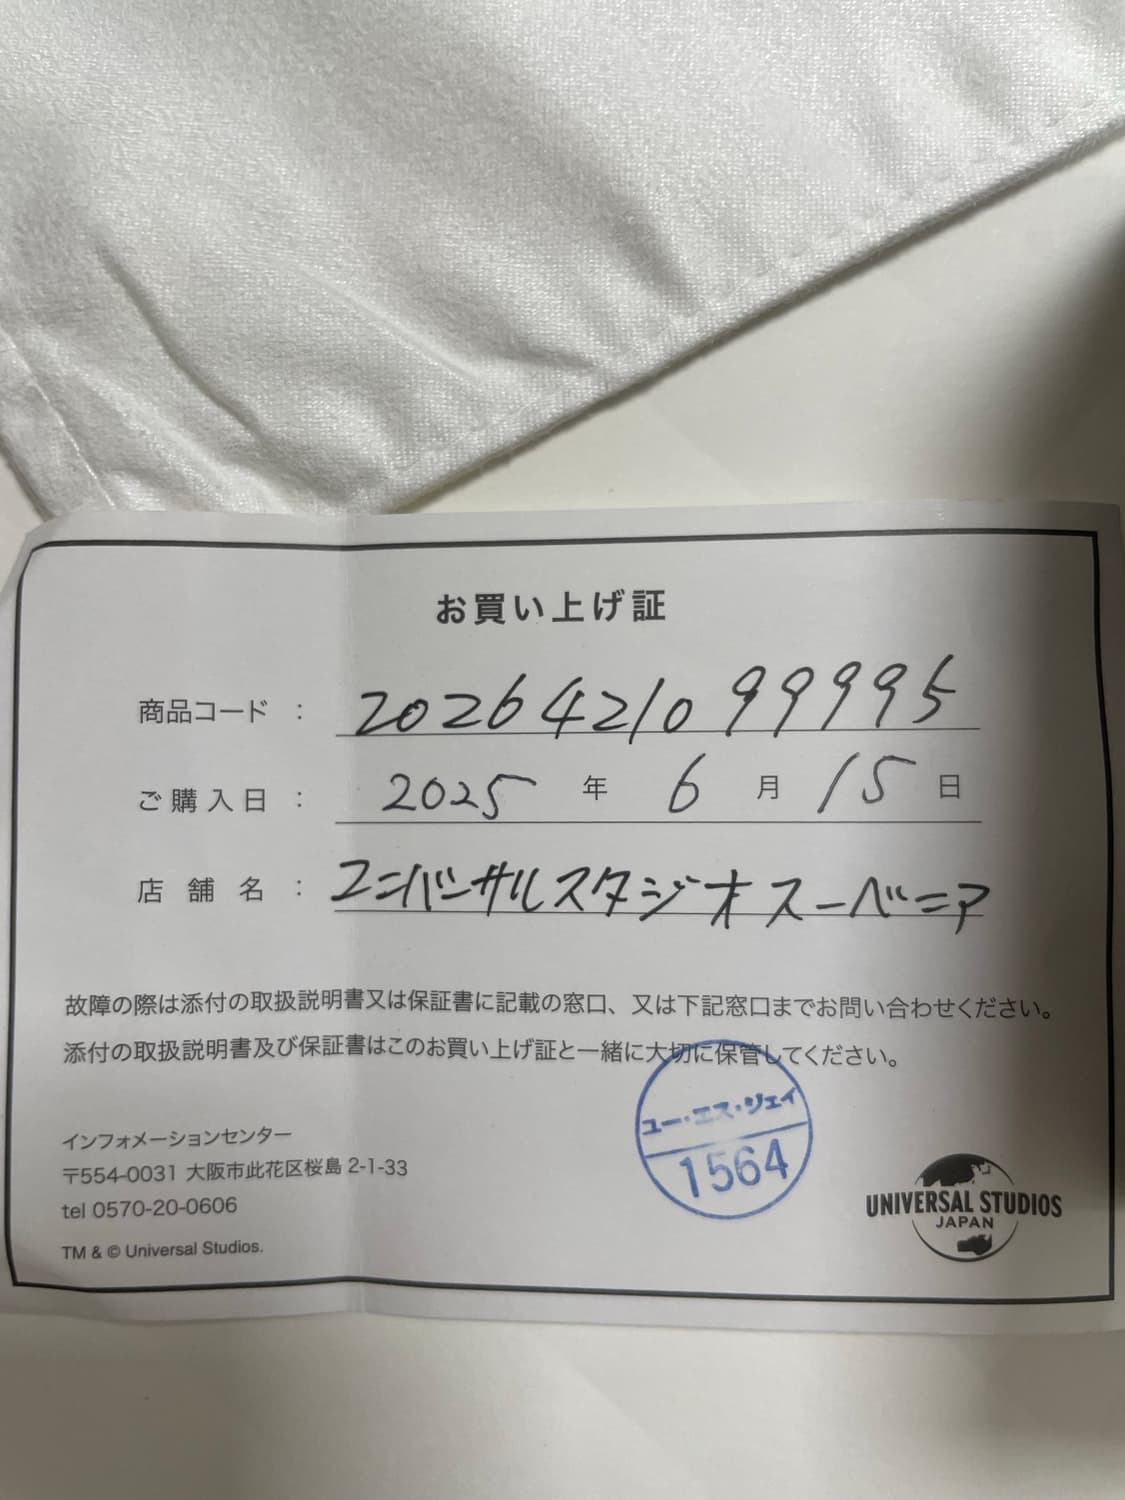 お買い上げ証
商品コード : 2026421099995
ご購入日 : 2025 年 6 月 15 日
店舗名 : ユニバーサルスタジオスーベニア
故障の際は添付の取扱説明書又は保証書に記載の窓口、又は下記窓口までお問い合わせください。
添付の取扱説明書及び保証書はこのお買い上げ証と一緒に大切に保管してください。
ユー・エス・ジェイ
1564
インフォメーションセンター
〒554-0031 大阪市此花区桜島 2-1-33
tel 0570-20-0606
TM & © Universal Studios.
UNIVERSAL STUDIOS
JAPAN